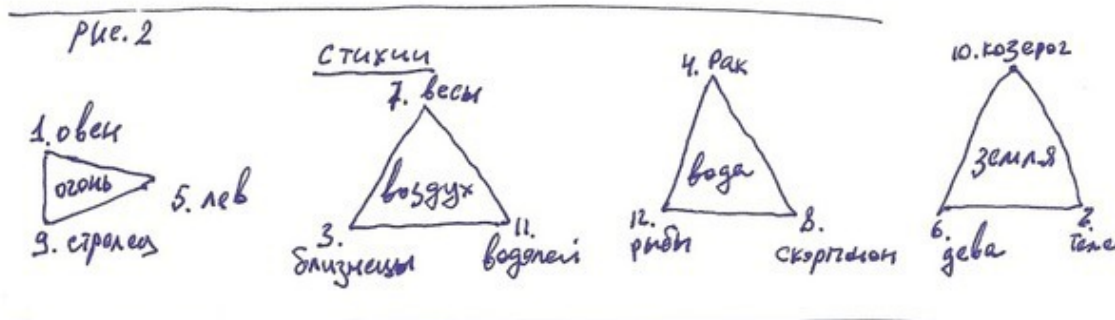 Рис. 2
Стихии
1. овен
огонь
5. лев
9. стрелец
7. весы
воздух
3. близнецы
11. водолей
4. Рак
вода
12. рыбы
8. скорпион
10. козерог
земля
6. дева
2. теле